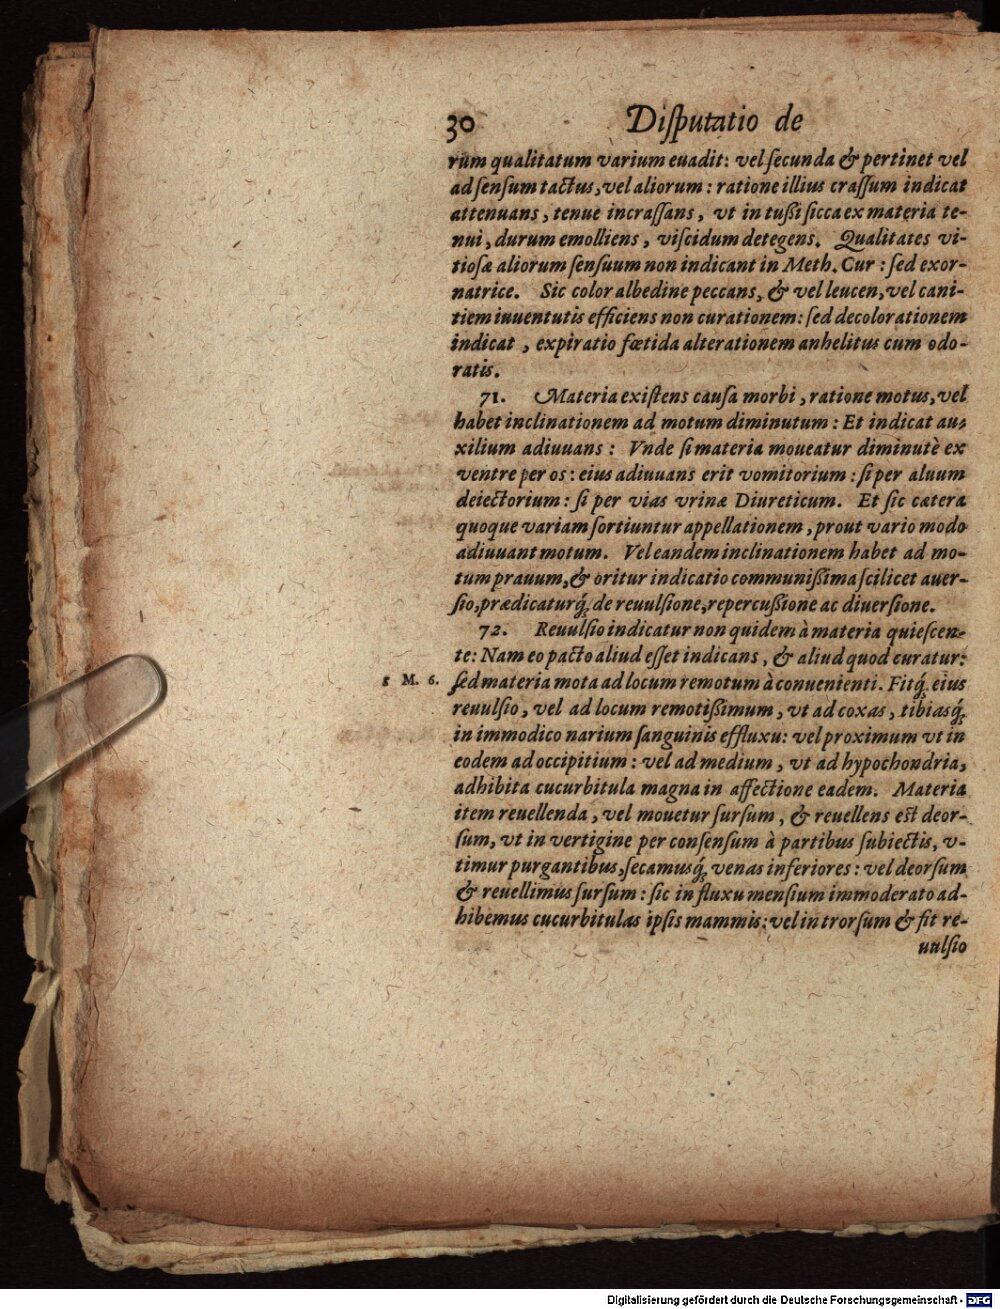 30 Diſputatio de
rum qualitatum varium euadit: vel ſecunda & pertinet vel
ad ſenſum tactus, vel aliorum: ratione illius craſſum indicat
attenuans, tenue incraſſans, vt in tußi ſicca ex materia te-
nui, durum emolliens, viſcidum detegens. Qualitates vi-
tioſæ aliorum ſenſuum non indicant in Meth. Cur: ſed exor-
natrice. Sic color albedine peccans, & vel leucen, vel cani-
tiem iuuentutis efficiens non curationem: ſed decolorationem
indicat, expiratio fœtida alterationem anhelitus cum odo-
ratis.
71. Materia exiſtens cauſa morbi, ratione motus, vel
habet inclinationem ad motum diminutum: Et indicat au-
xilium adiuuans: Vnde ſi materia moueatur diminutè ex
ventre per os: eius adiuuans erit vomitorium: ſi per aluum
deiectorium: ſi per vias vrinæ Diureticum. Et ſic cætera
quoque variam ſortiuntur appellationem, prout vario modo
adiuuant motum. Vel eandem inclinationem habet ad mo-
tum prauum, & oritur indicatio communißima ſcilicet auer-
ſio, prædicaturq́; de reuulſione, repercußione ac diuerſione.
72. Reuulſio indicatur non quidem à materia quieſcen-
te: Nam eo pacto aliud eſſet indicans, & aliud quod curatur:
5 M. 6. ſed materia mota ad locum remotum à conuenienti. Fitq́; eius
reuulſio, vel ad locum remotißimum, vt ad coxas, tibiasq́;
in immodico narium ſanguinis effluxu: vel proximum vt in
eodem ad occipitium: vel ad medium, vt ad hypochondria,
adhibita cucurbitula magna in affectione eadem. Materia
item reuellenda, vel mouetur ſurſum, & reuellens eſt deor-
ſum, vt in vertigine per conſenſum à partibus ſubiectis, v-
timur purgantibus, ſecamusq́; venas inferiores: vel deorſum
& reuellimus ſurſum: ſic in fluxu menſium immoderato ad-
hibemus cucurbitulas ipſis mammis: vel introrſum & fit re-
uulſio
Digitalisierung gefördert durch die Deutsche Forschungsgemeinschaft - DFG